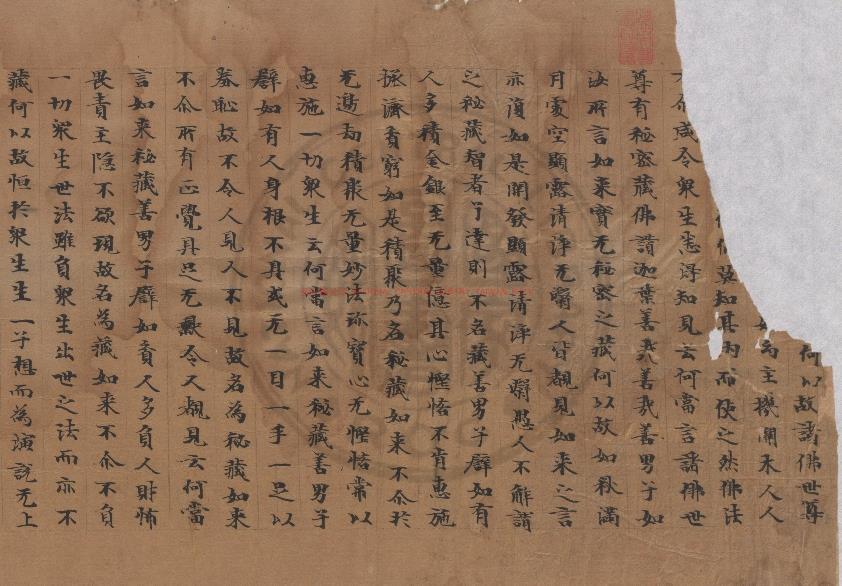 何以故諸佛世尊
主機關木人人
莫知其內而使之然佛法
不尒咸令衆生悉得知見云何當言諸佛世
尊有秘密藏佛讃迦葉善哉善哉善男子如
汝所言如来實无秘密之藏何以故如秋滿
月處空顯露清淨无翳人皆覩見如来之言
亦復如是開發顯露清淨无翳愚人不解謂
之秘藏智者了達則不名藏善男子譬如有
人多積金銀至无量億其心慳悋不肯惠施
拯濟貧窮如是積聚乃名秘藏如来不尒於
无邊劫積聚无量妙法珎寶心无慳悋常以
惠施一切衆生云何當言如来秘藏善男子
譬如有人身根不具或无一目一手一足以
羞恥故不令人見人不見故名為秘藏如来
不尒所有正覺具足无缺令人覩見云何當
言如来秘藏善男子譬如貧人多負人財怖
畏責主隱不欲現故名為藏如来不尒不負
一切衆生世法雖負衆生出世之法而亦不
藏何以故恒於衆生生一子想而為演說无上